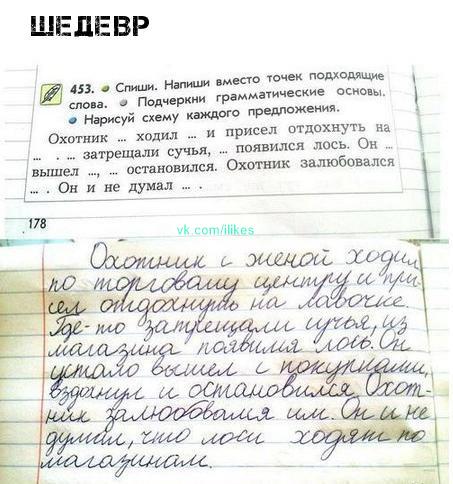 ШЕДЕВР
453. Спиши. Напиши вместо точек подходящие
слова. Подчеркни грамматические основы.
Нарисуй схему каждого предложения.
Охотник ... ходил ... и присел отдохнуть на
... . ... затрещали сучья, ... появился лось. Он ...
вышел ..., ... остановился. Охотник залюбовался
... . Он и не думал ... .
178
vk.com/ilikes
Охотник с женой ходил
по торговому центру и при-
сел отдохнуть на лавочке.
Где-то затрещали сучья, из
магазина появился лось. Он
устало вышел с покупками,
вздохнул и остановился. Охот-
ник залюбовался им. Он и не
думал, что лоси ходят по
магазинам.